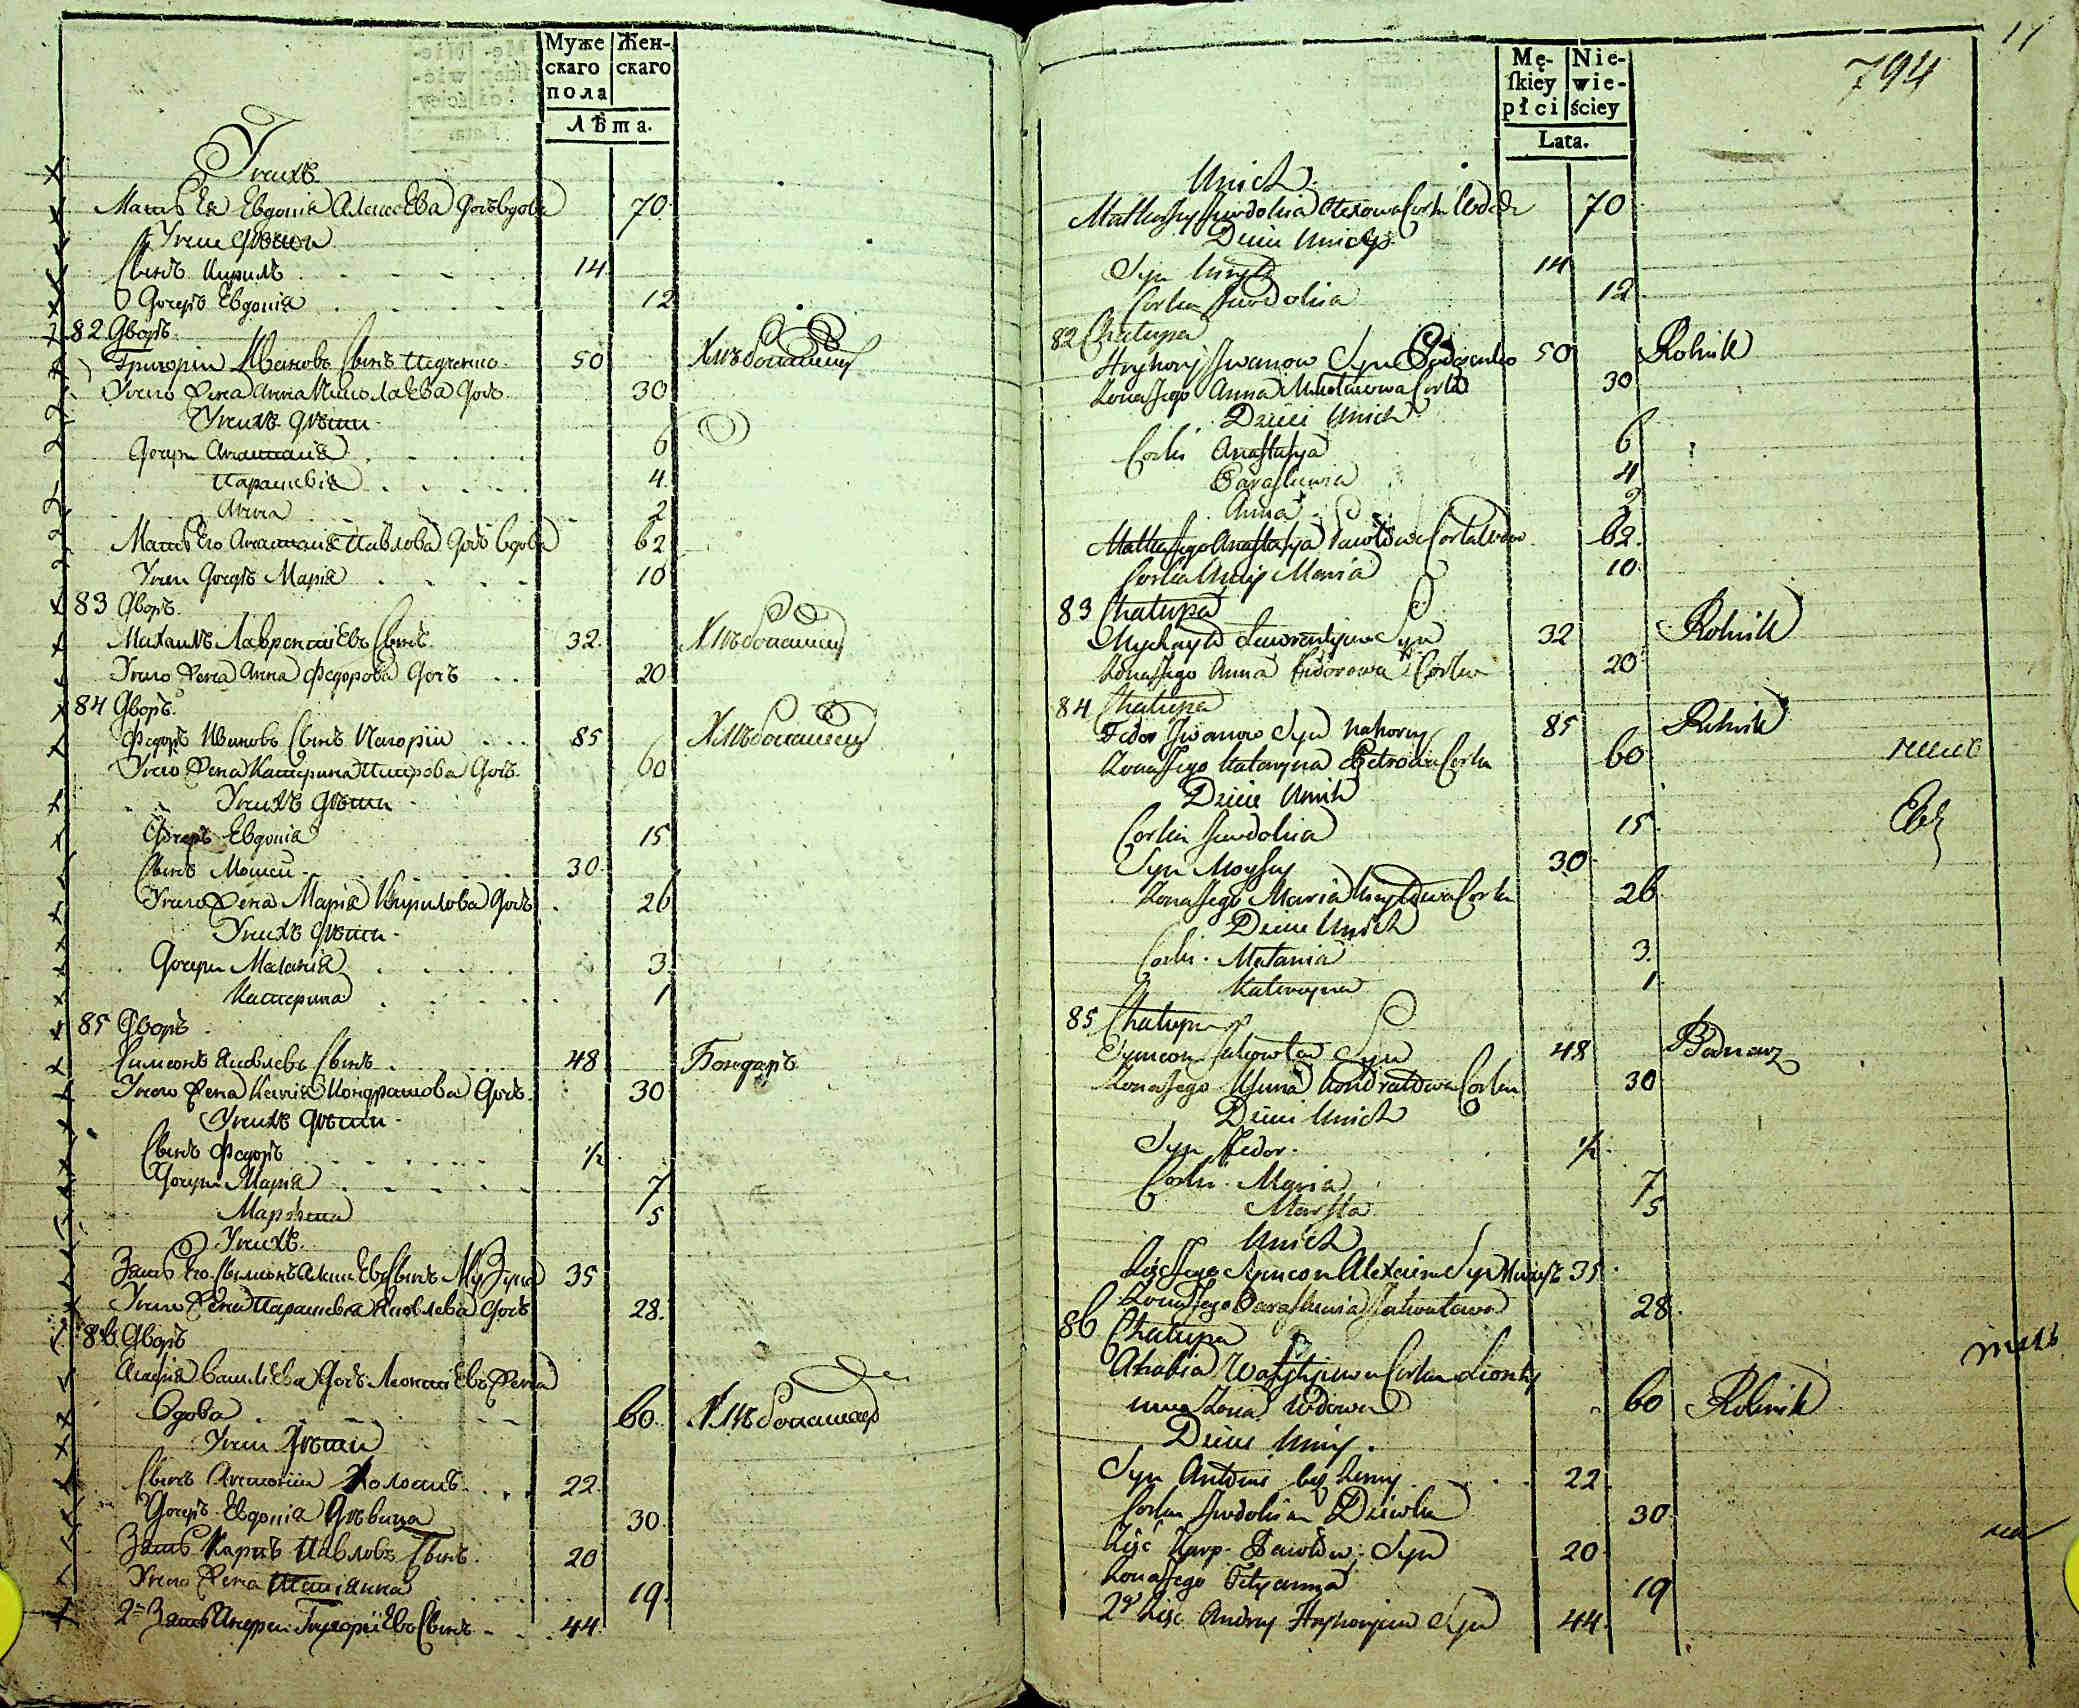 Муже
скаго
пола
Жен-
скаго
лѣта.
У нихъ
Мать Ея Евдокія Алексѣева дочь вдова 70
У нея дѣти
Сынъ Кирилъ 14
Дочерь Евдокія 12
82 Дворъ
Григорій Ивановъ Сынъ 50 Хлѣбопашецъ
У него Жена Анна Николаева дочь 30
У нихъ дѣти
Дочери Анастасія 6
Параскевія 4
Анна 2
Мать Его Анастасія Павлова дочь вдова 62
У ней Дочерь Марія 10
83 Дворъ
Михаилъ Лаврентіевъ Сынъ 32 Хлѣбопашецъ
У него Жена Анна Федорова дочь 20
84 Дворъ
Федоръ Ивановъ Сынъ Нагорній 85 Хлѣбопашецъ
У него Жена Катерина Петрова дочь 60
У нихъ дѣти
Дочерь Евдокія 15
Сынъ Мойсей 30
У него Жена Марія Кирилова дочь 26
У нихъ дѣти
Дочери Маланія 3
Катерина 1
85 Дворъ
Симеонъ Яковлевъ Сынъ 48 Бондарь
У него Жена Ксенія Кондратова дочь 30
У нихъ дѣти
Сынъ Федоръ ½
Дочери Марія 7
Марѳа 5
У нихъ
Зять Его Симеонъ Алексѣевъ Сынъ 35
У него Жена Параскевія Яковлева дочь 28
86 Дворъ
Агафія Василіева дочь Леонтіевъ Жена
Вдова 60 Хлѣбопашецъ
У ней Дѣти
Сынъ Антоній Холостъ 22
Дочерь Евдокія Дѣвица 30
Зять Карпъ Павловъ Сынъ 20
У него Жена Татіанна 19
2й Зять Андрей Григоріевъ Сынъ 44
Mę-
ſkiey
płci
Nie-
wie-
ściey
Lata.
794
17
Unich
Matka Jey Jewdokia Alexowa Corka Wdowa 70
Dzieci Unicy
Syn Kiryło 14
Corka Jewdokia 12
82 Chałupa
Hryhory Jwanow Syn 50 Rolnik
Zona Jego Anna Mikołaiowa Corka 30
Dzieci Unich
Corki Anastasya 6
Paraskewia 4
Anna 2
Matka Jego Anastasya Pawłowa Corka Wdowa 62
Corka Uniey Maria 10
83 Chałupa
Mychayło Ławrentyiew Syn 32 Rolnik
Zona Jego Anna Fedorowa Corka 20
84 Chałupa
Fedor Jwanow Syn Nahorny 85 Rolnik
Zona Jego Kateryna Petrowa Corka 60
Dzieci Unich
Corka Jewdokia 15
Syn Moysey 30
Zona Jego Maria Kiryłowa Corka 26
Dzieci Unich
Corki Małania 3
Kateryna 1
85 Chałupa
Symeon Jakowlew Syn 48 Bednarz
Zona Jego Xenia Kondratowa Corka 30
Dzieci Unich
Syn Fedor ½
Corki Maria 7
Marfta 5
Unich
Zięc Jego Symeon Alexeiew Syn 35
Zona Jego Paraskewia Jakowlewa 28
86 Chałupa
Ahafia Wasylyiewa Corka Leonty
iewa Zona Wdowa 60 Rolnik
Dzieci Uniey
Syn Antoni bez Zeny 22
Corka Jewdokia Dziewka 30
Zięć Karp Pawłow Syn 20
Zona Jego Tetyanna 19
2gi Zięc Andrey Hryhoryiew Syn 44